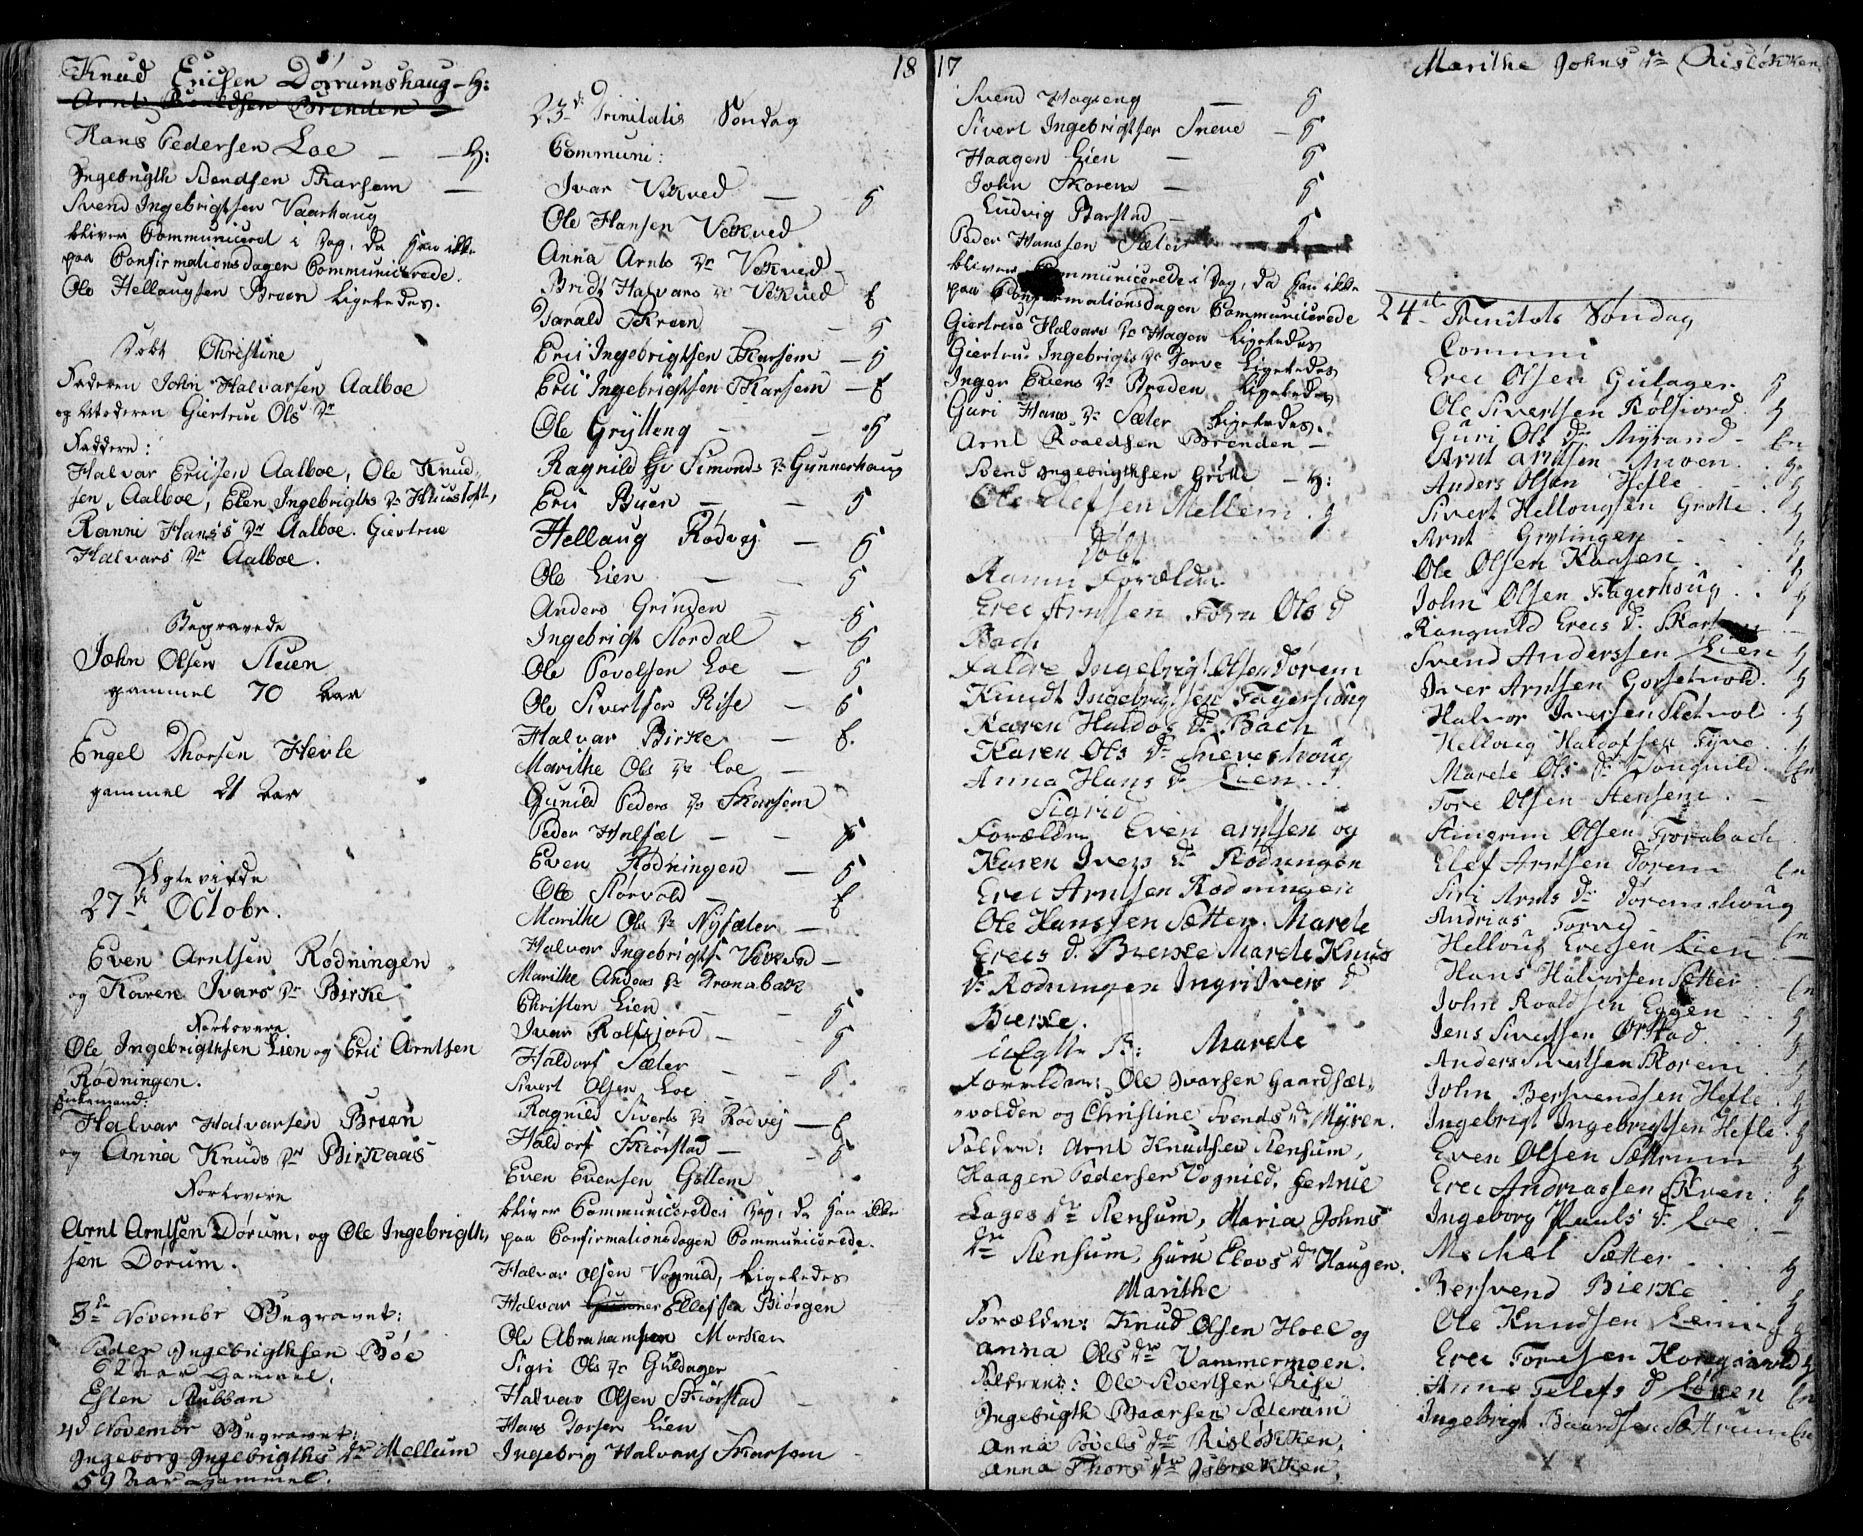 Knud Ericsen Dørrumshaug - H:
Arnt Roaldsen Brenden
Hans Pedersen Loe - H:
Ingebrigth Svendsen Skarsem
Svend Ingebrigtsen Vaarhaug
bliver Communiceret i Dag, da han ikke
paa Confirmationsdagen Communicerede.
Ole Hellaugsen Broen Ligeledes.
Døbt Christine
Faderen John Halvarsen Aalboe
og Moderen Giertru Ols Dr
Faddere:
Halvar Ericsen Aalboe, Ole Knud-
sen, Aalboe, Elen Ingebrigths Dr
Ranni Hans's Dr Aalboe. Giertrue
Halvars Dr Aalboe.
Begravede
John Olsen Stuen
gammel 70 Aar
Engel Thorsen Hevle
gammel 21 Aar
Ægteviede
27de Octobr.
Even Arntsen Rødningen
og Karen Ivars Dr Birke
Forlovere
Ole Ingebrigthsen Lien og Eric Arntsen
Rødningen.
Enkemand:
Halvar Halvarsen Broen
og Anna Knuds Dr Birkaas
Forlovere
Arnt Arntsen Dørum, og Ole Ingebrigth,
sen Dørum.
3de Novembr Begravet:
Peder Ingebrigthsen Böe
Aar Gammel.
Esten Stubban
4d Novembr Begravet:
Ingeborg Ingebrigths Dr Mellum
59 Aar Gammel.
18
23de Trinitatis Søndag
Communi:
Ivar Vekved
Ole Hansen Vekved
Anna Arnts Dr Vekved
Bridt Halvars Dr Vekved
Harald Skroen
Eric Ingebrigtsen Skarsem
Eric Ingebrigtsen Skarsem
Ole Grytteng
Ragnild Simonds Dr Gunnerhaug
Eric Buen
Hellaug Rødvej
Ole Lien
Anders Grinden
Ingebrigt Stordal
Ole Povelsen Loe
Ole Sivertsen Rise
Halvar Birke
Marithe Ols Dr Loe
Gunild Peders Dr Skarsem
Peder Hulsæt
Even Rødningen
Ole Storvold
Marithe Ols Dr Nysæter
Halvar Ingebrigts Vekved
Marithe Andeas Dr Dronabakk
Christen Lien
Ivar Rolfsjord
Haldorf Sæter
Sivert Olsen Loe
Ragnild Siverts Dr Rødvej
Haldorf Skiørstad
Even Evensen Gottem
bliver Communiceredes Dag, da han ikke
paa Confirmationsdagen Communicerede.
Halvar Olsen Vognild, Ligeledes
Halvar Ellefsen Biørgen
Ole Abrahamsen Morken
Sigri Ols Dr Guldager
Halvar Olsen Skiørstad
Hans Torsen Lien
Ingebrig Halvars Skarsem
17
Svend Hagseng
Sivert Ingebrigtsen Sneve
Haagen Lien
John Skorem
Ludvig Barstad
Peder Hanssen Sæter
bliver Communicerede i Dag, da han ikke
paa Confirmationsdagen Communicerede
Giertrue Halvars Dr Hagen Ligeledes
Giertrue Ingebrigts Dr Torve Ligeledes
Inger Evens Dr Broden Ligeledes
Guri Hans Dr Sæter Ligeledes.
Arnt Roaldsen Brenden
Svend Ingebrigthsen Grøtte - H:
Ole Elefsen Mellem
Døbt
Forældre
Erec Arntsen Ols D
Bach
Faldre Ingebrigt Olsen Dørem
Knudt Ingebrigtsen Fagerhoug
Karen Haldos Dr Bach
Karen Ols Dr Sneveshoug
Anna Hans Dr Lien
Sigrid
Forældre Even Arntsen og
Karen Ivers Dr Rødningen
Erec Arntsen Rodningen
Ole Hanssen Sætter. Marete
Erecs D. Bierke Marete Knus
Dr Rodningen Ingri Ivers D
Bierke.
uEgte B: Marete
Forældre: Ole Ivarsen Gaardsæt,
volden og Christine Svends Dr Myren.
Faddre: Arnt Knudtsen Stensum,
Haagen Pedersen Vognild, Gertrue
Lages Dr Stensum, Maria Johns
Dr Stensum, Guru Elovs Dr Haugen.
Marithe
Forældre: Knud Olsen Hoel og
Anna Ols Dr Vammermoen.
Fældrene: Ole Sivertsen Rise
Ingebrigth Baarsen Sæterum
Anna Povels Dr Risløkken,
Anna Thors Dr Isbrækken,
Marithe Johns Dr Risløkken
24de Trinitats Søndag
Comuni
Erec Olsen Gulager
Ole Sivertsen Rolfsiord
Guri Ols Dr Myrand
Arnt Arntsen Moen
Anders Olsen Hefle
Sivert Hellougsen Grotte
Arnt Grytingen
Ole Olsen Kaasen
John Olsen Fagerhoug
Rangnild Erecs D. Skarsem
Svend Anderssen Lien
Iver Arntsen Gorsetvold
Halvor Iversen Sletvold
Hellovg Haldorsen Fyve
Marete Ols Dr Vongnild
Tore Olsen Stensem
Steingrim Olsen Tronabach
Elef Arntsen Dørem
Siri Arnts Dr Døremshoug
Andrias Torve
Hellovg Erecsen Lien
Hans Halvorsen Sætter
John Roaldsen Eggen
Jens Sivertsen Ørstad
Anders Sivertsen Skorem
John Bersvendsen Hefle
Ingebrigt Ingebrigtsen Hefle
Even Olsen Sættrum
Erec Andriassen Kven
Ingeborg Pauls Dr Loe
Mechel Sætter
Bersvend Bierke
Ole Knudsen Lening
Erec Toresen Korsgaard
Anne Telefs D Løken
Ingebrigt Baardsen Sættrum